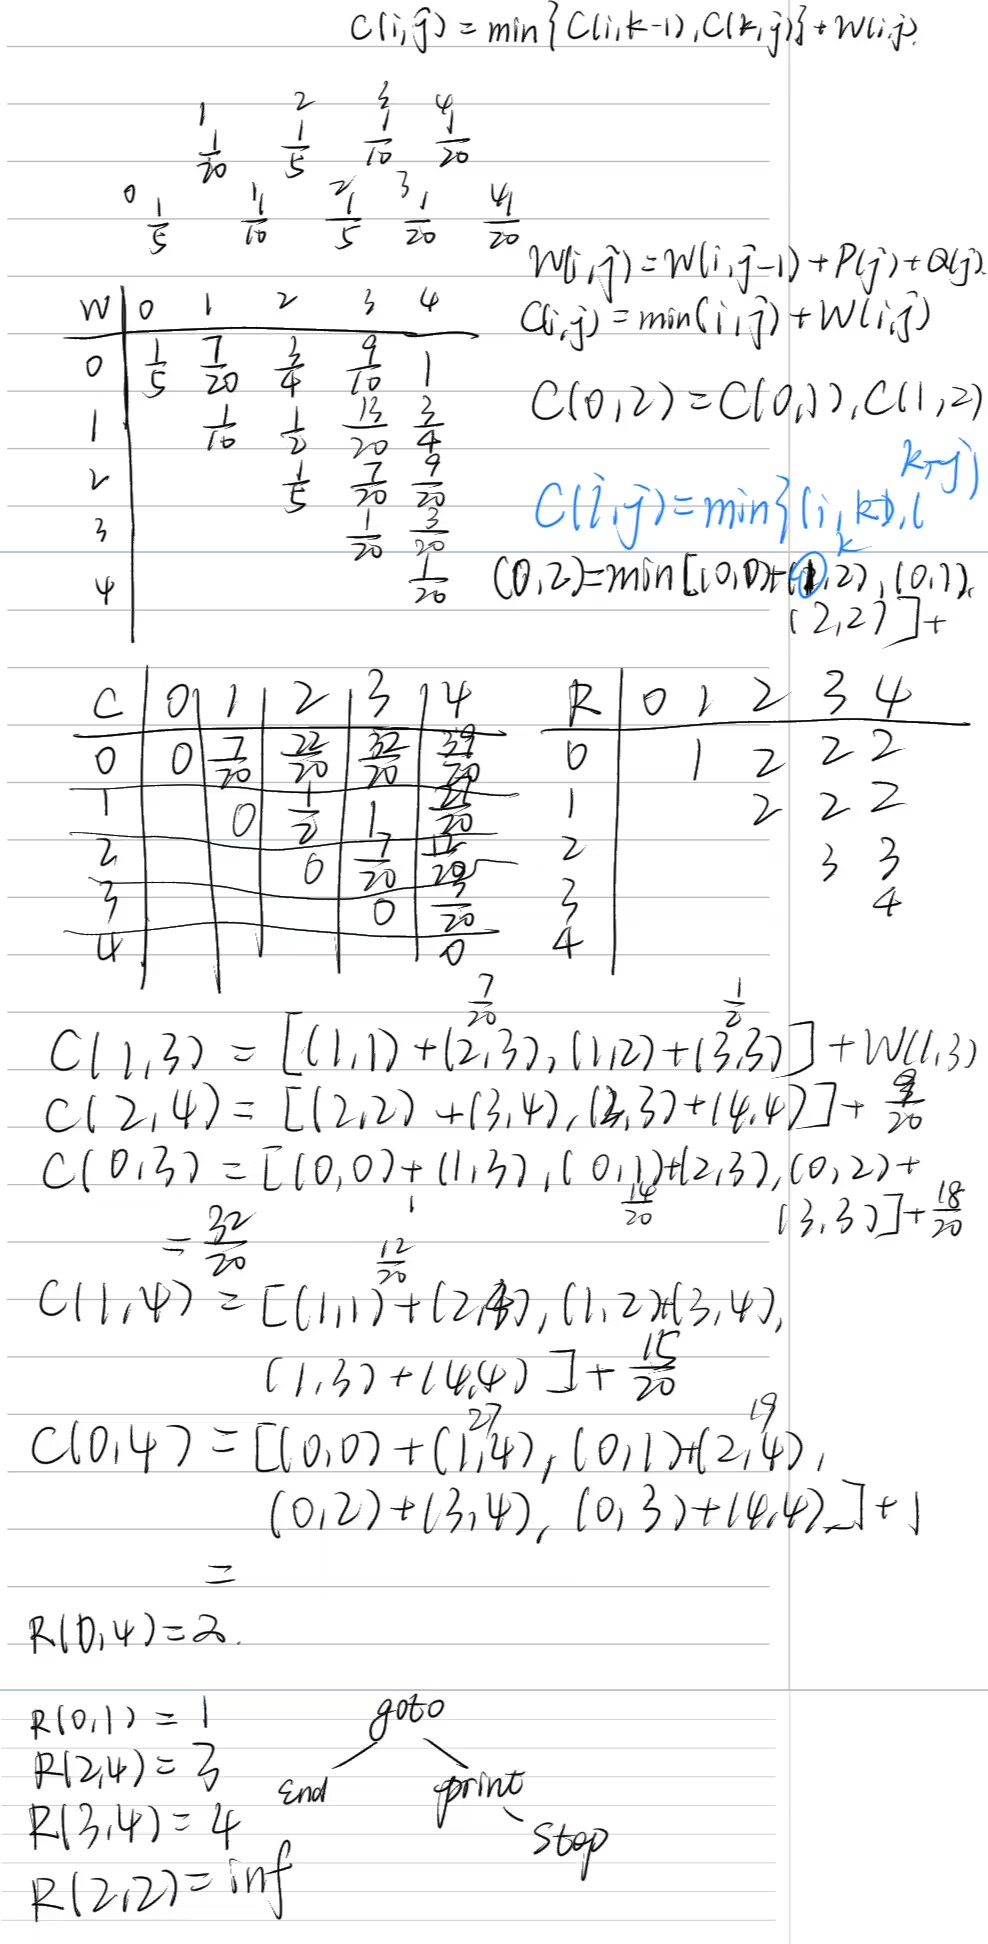 C(i,j) = min{C(i,k-1), C(k,j)} + W(i,j)
1 2 3 4
1/20 1/5 1/10 1/20
0 1 2 3 4
1/5 1/10 1/5 1/20 1/20
W(i,j) = W(i,j-1) + P(j) + Q(j)
C(i,j) = min(i,j) + W(i,j)
C(0,2) = C(0,1), C(1,2)
W 0 1 2 3 4
0 1/5 7/20 3/4 9/10 1
1 1/10 1/2 13/20 3/4
2 1/5 7/20 9/20
3 1/20 3/20
4 1/20
C(i,j) = min{(i,k-1), (
k,j)
k
(0,2) = min[(0,0)+(1,2), (0,1),
(2,2)] +
C 0 1 2 3 4
0 0 7/20 22/20 32/20 39/20
1 0 1/2 1 27/20
2 0 7/20 12/20
3 0 3/20
4 0
R 0 1 2 3 4
0 1 2 2 2
1 2 2 2
2 3 3
3 4
4
7/20 1/2
C(1,3) = [(1,1)+(2,3), (1,2)+(3,3)] + W(1,3)
C(2,4) = [(2,2)+(3,4), (2,3)+(4,4)] + 9/20
C(0,3) = [(0,0)+(1,3), (0,1)+(2,3), (0,2)+
1 14/20 (3,3)] + 18/20
= 32/20
12/20
C(1,4) = [(1,1)+(2,4), (1,2)+(3,4),
(1,3)+(4,4)] + 15/20
27 19
C(0,4) = [(0,0)+(1,4), (0,1)+(2,4),
(0,2)+(3,4), (0,3)+(4,4)] + 1
=
R(0,4) = 2.
R(0,1) = 1
R(2,4) = 3
R(3,4) = 4
R(2,2) = inf
goto
End print
Stop